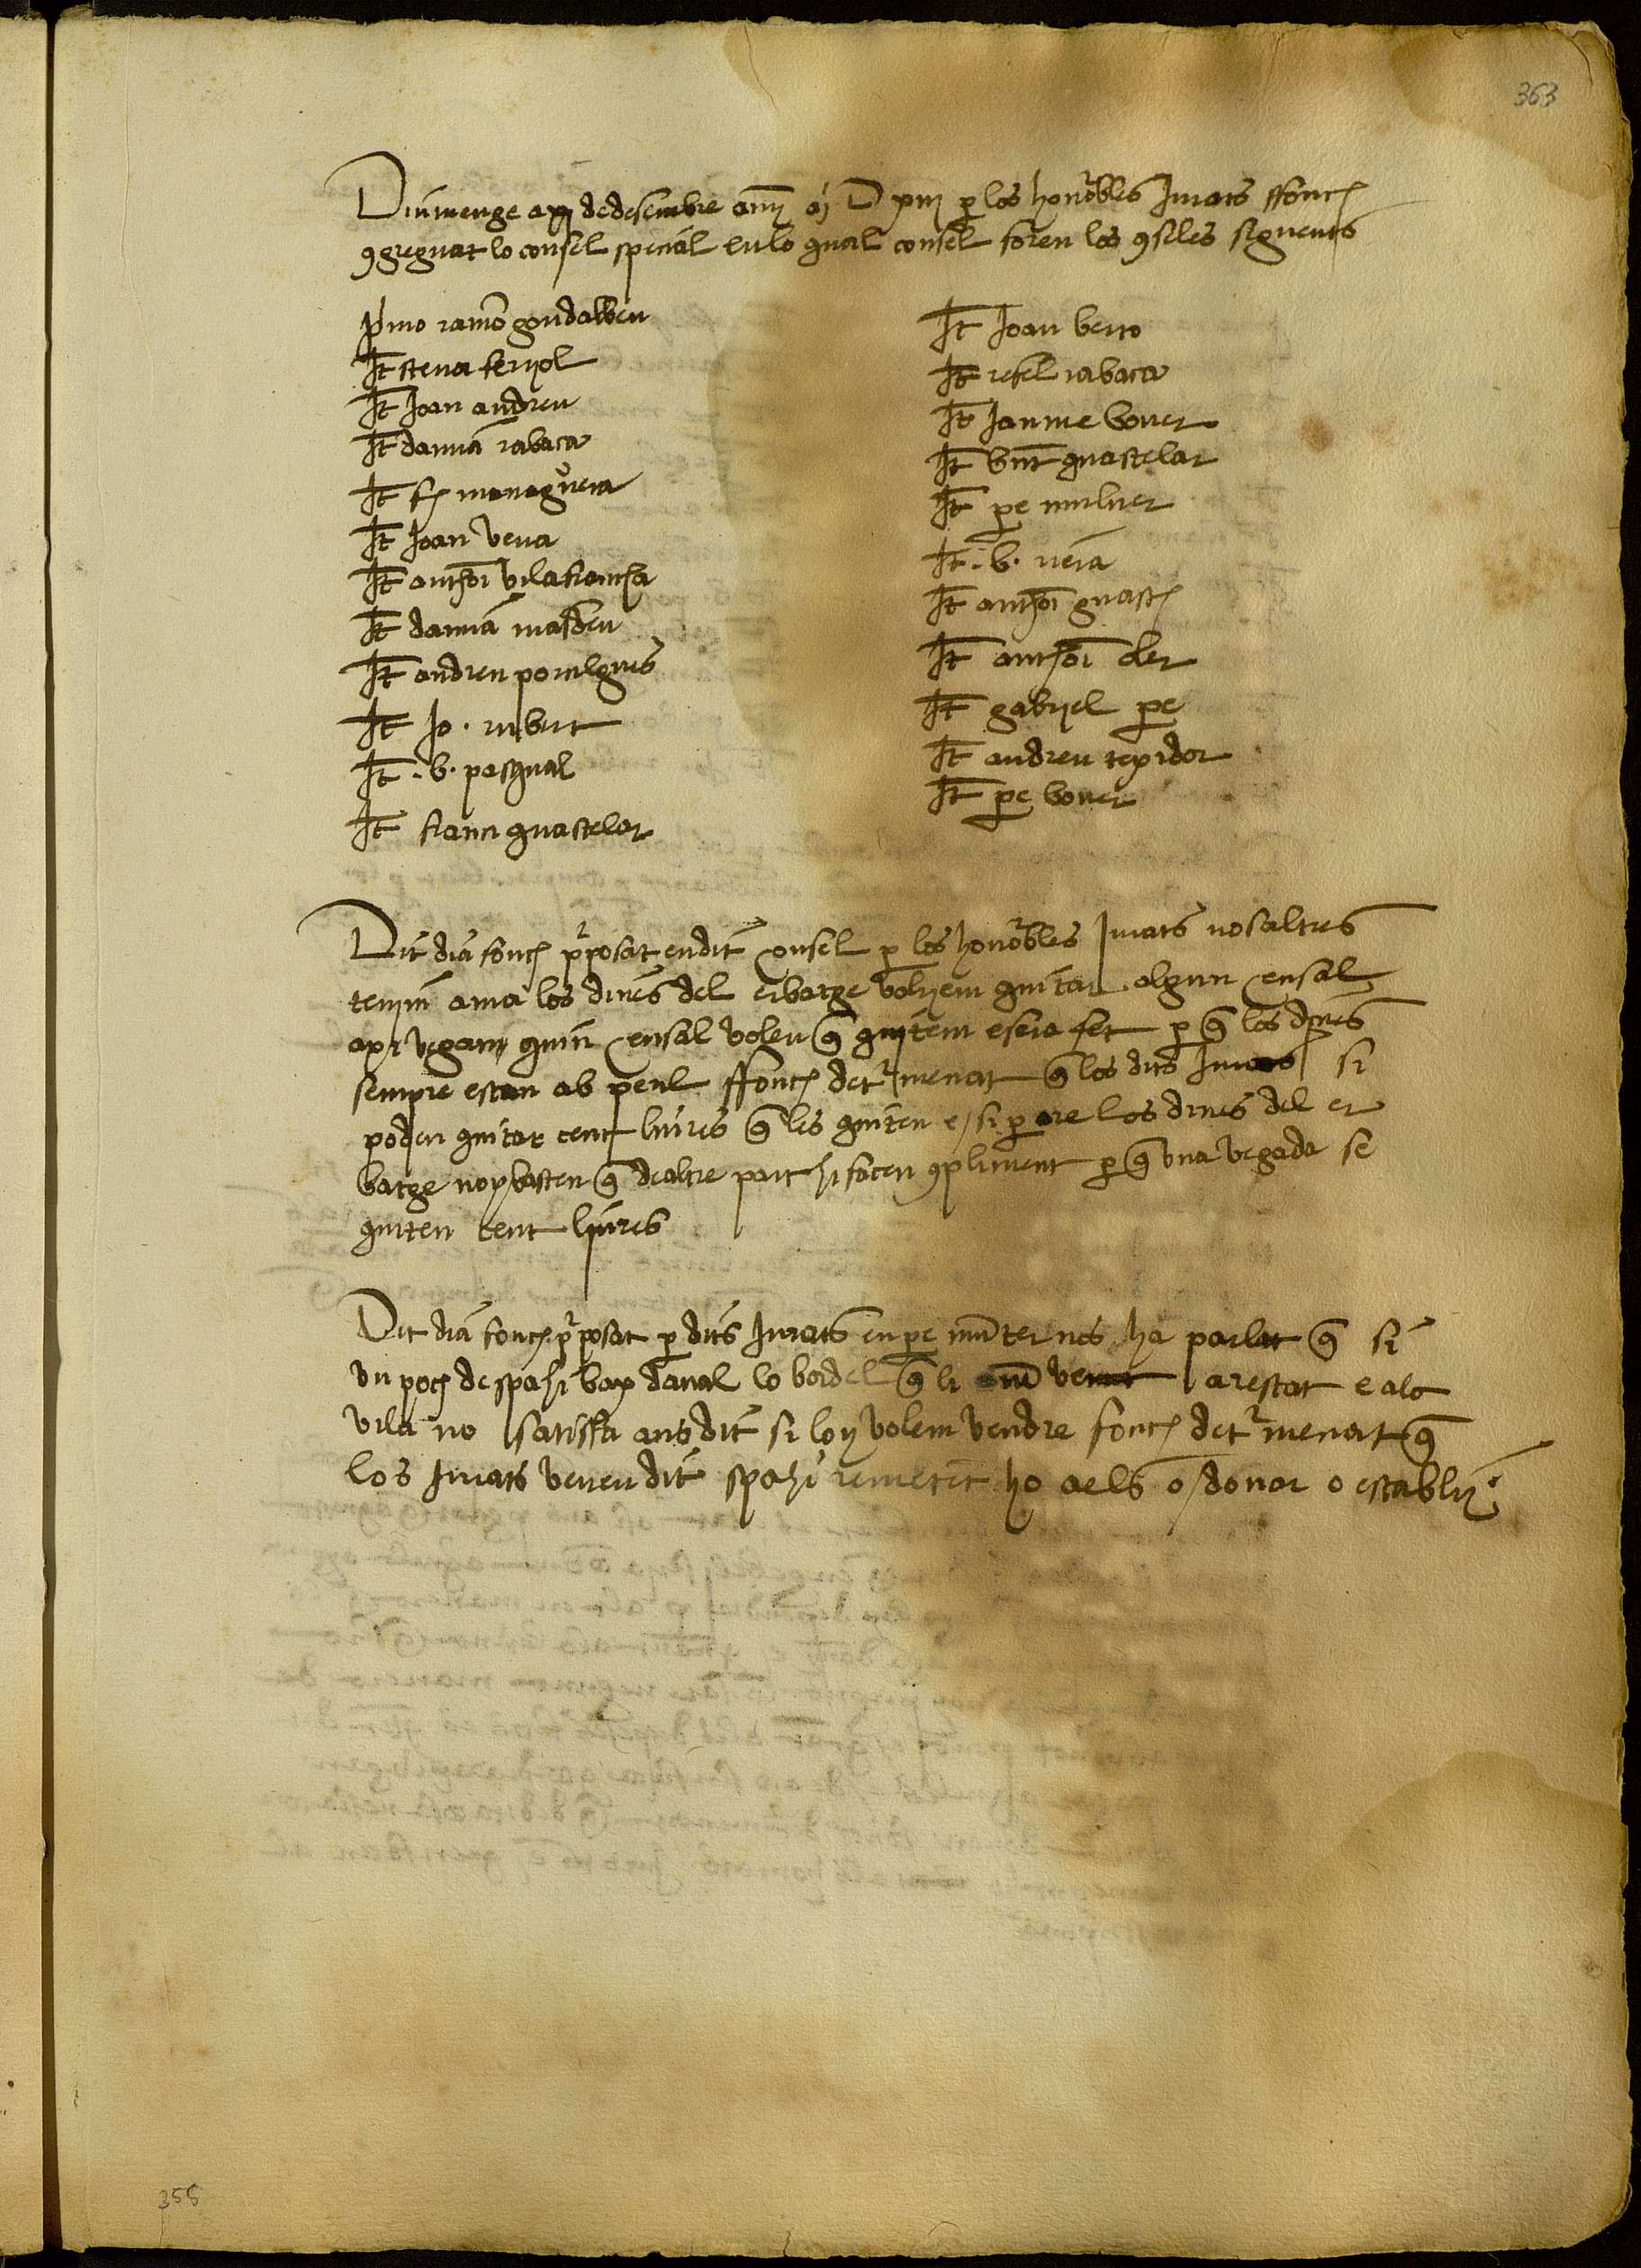 363
Diumenge a xj dedesembre anny Mj D xiij p los honorables Jurats ffonch
9greguat lo consel special enlo qual consel foren los 9seles seguents
primo ramo gondalbeu
It steva ferriol
It Joan andreu
It damia rabaca
It fr managuera
It Joan vena
It anthoi vilafrancha
It damia masdeu
It andreu porulgues
It Jo. rubert
It .b. pasqual
It franci guastelar
It Joan berro
It rafel rabaca
It Jaume bover
It bnt guastelar
It pe muluer
It .b. riera
It anthoi guasch
It anthoi oler
It gabriel pe
It andreu texidor
It pe bover
Dit dia fonch pposat en dit consel p los honorables Jurats nosaltres
tenim a ma los dines del erbatge volriem quitar algun censal
axi vegam quin censal voleu q quitem e sera fet p q los dines
sempre estan ab peril ffonch detrmenat q los dits Jurats si
poden quitar cent liures q les quiten e si p are los dines del er
batge noy basten q dealtre part hi facen 9pliment p q una vegada se
quiten cent liures
Dit dia fonch pposat p dits Jurats en pe munternes ha parlat q si
un poch de spahi bax daval lo bordel q li arestat e ala
vila no satisfa ans dit si loy volem vendre fonch detrmenat q
los Jurats venen dit spahi remetent ho a els o donar o establir
355